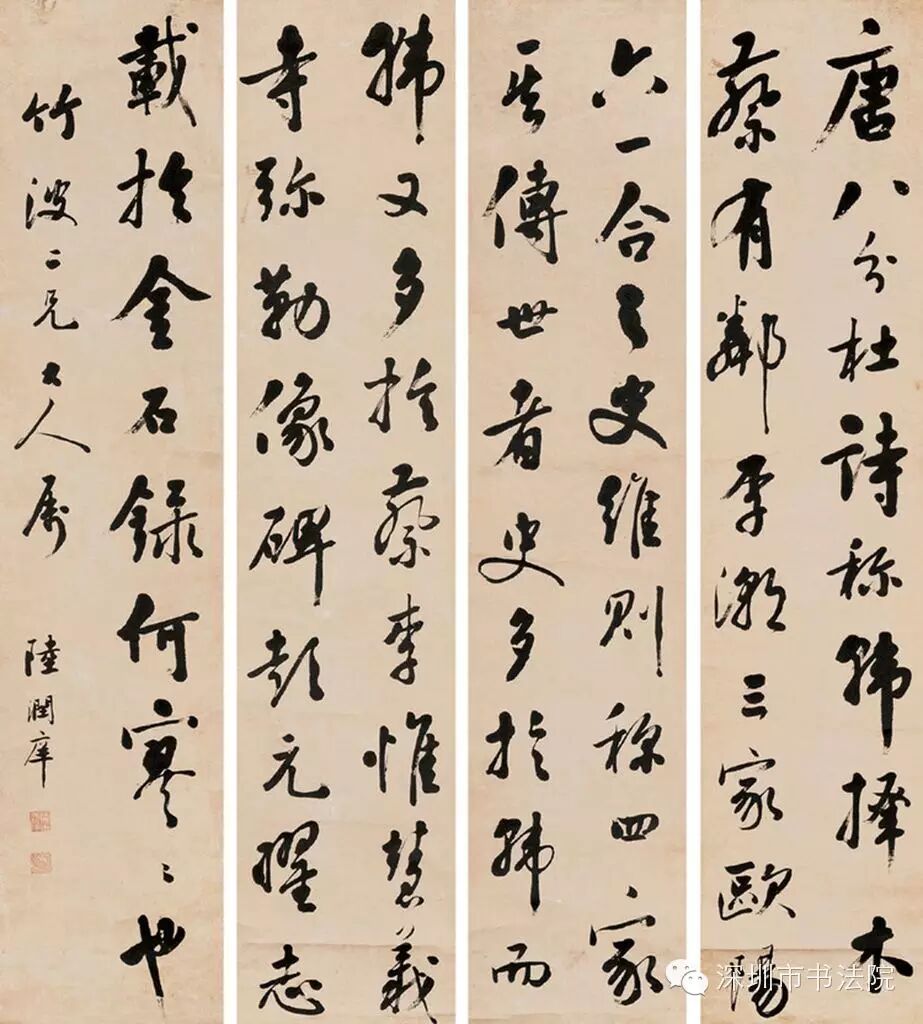 唐八分杜詩称韩擇木
蔡有鄰李潮三家歐陽
六一合之史維則称四家
其傳世者史多於韩而
韩又多於蔡李惟慧義
寺弥勒像碑彭元曜志
載於金石錄何寥〻也
竹波二兄大人属
陸潤庠
深圳市书法院